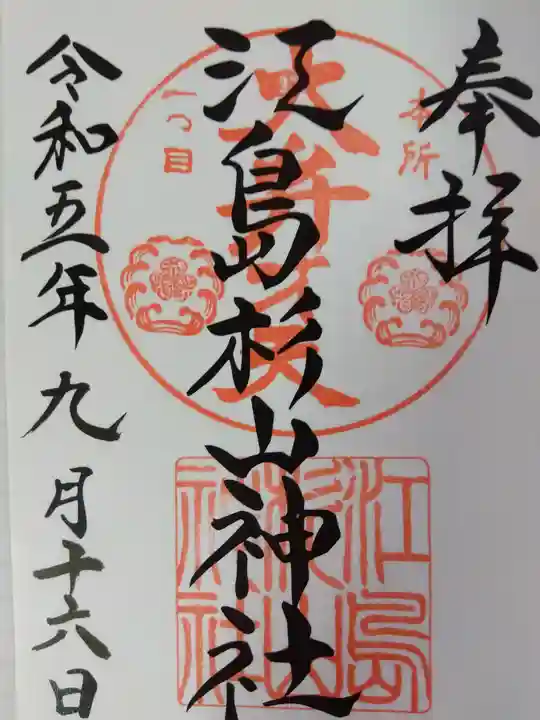 奉拝
本所
一つ目
江島杉山神社
江島
杉山
神社
令和五年九月十六日